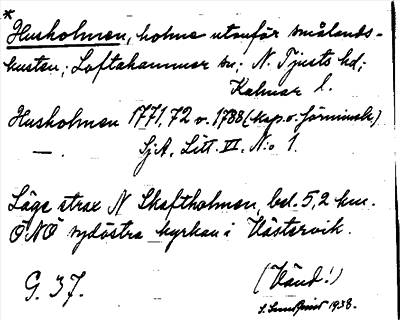 *
Husholmen, holme utanför smålands-
kusten; Loftahammar sn; N. Tjusts hd;
Kalmar l.
Husholmen 1771, 72 o. 1788 (kop. o. förminsk.)
—. SjA. Litt. VI. No 1.
Läge strax N Skaftholmen, bel. 5,2 km.
ÖNÖ sydöstra kyrkan i Västervik.
G. 37.
(Vänd!)
1938.